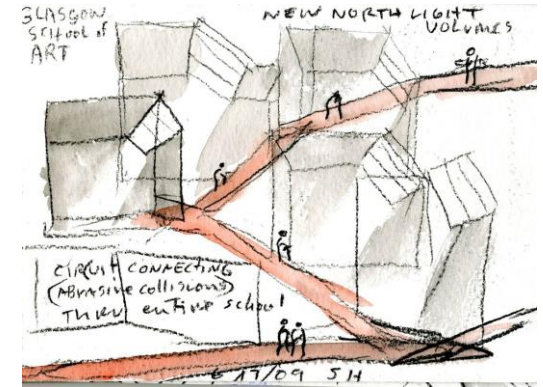 GLASGOW
SCHOOL of
ART
NEW NORTH LIGHT
VOLUMES
CIRCUIT CONNECTING
(ABRASIVE COLLISIONS)
THRU entire school
6/17/09 SH